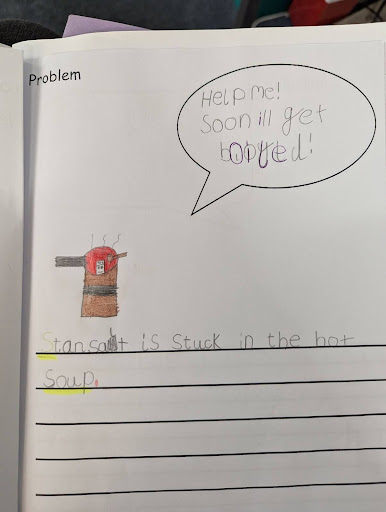 Problem
HelP me!
Soon ill get
is Stuck in the hot
Soup.